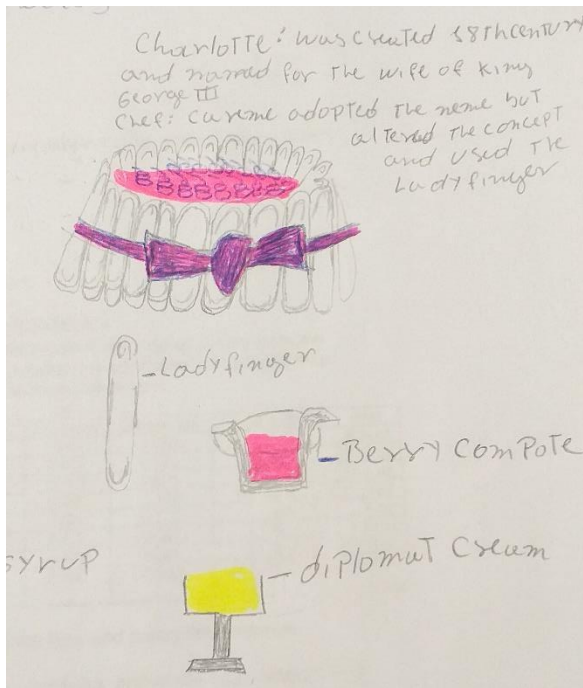 Charlotte: was created 18th century
and named for the wife of King
George III
Chef: careme adopted the neme but
altered the concept
and used the
Ladyfinger
Ladyfinger
Berry compote
syrup
diplomat cream